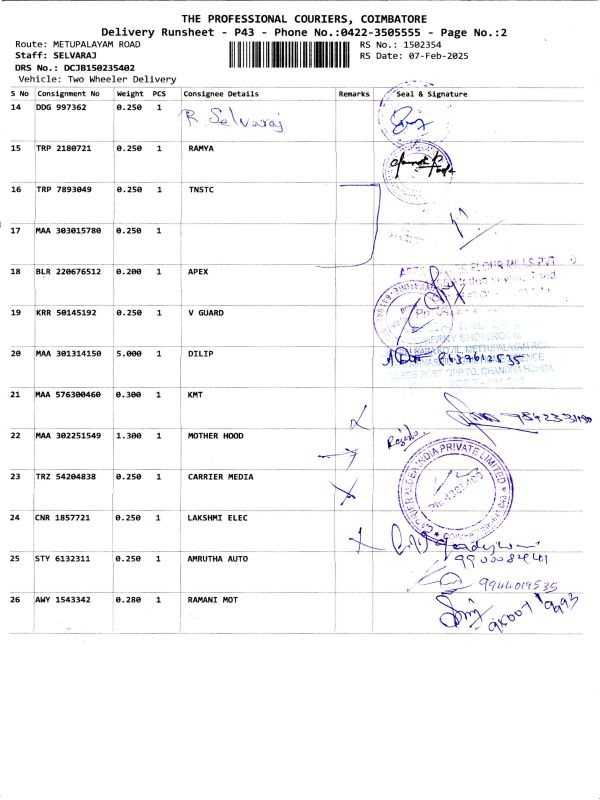 THE PROFESSIONAL COURIERS, COIMBATORE
Delivery Runsheet - P43 - Phone No.:0422-3505555 - Page No.:2
Route: METUPALAYAM ROAD RS No.: 1502354
Staff: SELVARAJ RS Date: 07-Feb-2025
DRS No.: DCJB150235402
Vehicle: Two Wheeler Delivery
S No Consignment No Weight PCS Consignee Details Remarks Seal & Signature
14 DDG 997362 0.250 1 R. Selvaraj
15 TRP 2180721 0.250 1 RAMYA
16 TRP 7893049 0.250 1 TNSTC
17 MAA 303015780 0.250 1
18 BLR 220676512 0.200 1 APEX
FLOUR MILLS PVT
19 KRR 50145192 0.250 1 V GUARD
SHOWROOM
20 MAA 301314150 5.000 1 DILIP
CHANDRA HONDA
21 MAA 576300460 0.300 1 KMT
22 MAA 302251549 1.300 1 MOTHER HOOD
23 TRZ 54204838 0.250 1 CARRIER MEDIA
CARRIER MEDIA INDIA PRIVATE LIMITED
24 CNR 1857721 0.250 1 LAKSHMI ELEC
25 STY 6132311 0.250 1 AMRUTHA AUTO
9944019535
26 AWY 1543342 0.280 1 RAMANI MOT